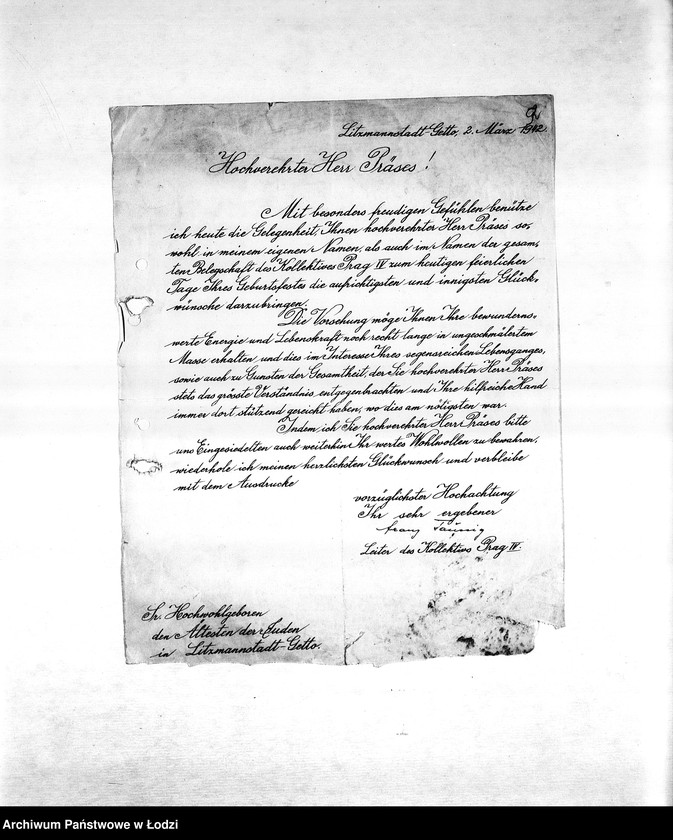 Litzmannstadt-Getto, 2. März 1942.
Hochverehrter Herr Präses!
Mit besonders freudigen Gefühlen benütze
ich heute die Gelegenheit, Ihnen hochverehrter Herr Präses so-
wohl in meinem eigenen Namen, als auch im Namen der gesam-
ten Belegschaft des Kollektives Prag IV zum heutigen feierlichen
Tage Ihres Geburtsfestes die aufrichtigsten und innigsten Glück-
wünsche darzubringen.
Die Vorsehung möge Ihnen Ihre bewunderns-
werte Energie und Lebenskraft noch recht lange in ungeschmälertem
Masse erhalten und dies im Interesse Ihres segensreichen Lebensganges,
sowie auch zu Gunsten der Gesamtheit, der Sie hochverehrter Herr Präses
stets das grösste Verständnis entgegenbrachten und Ihre hilfreiche Hand
immer dort stützend gereicht haben, wo dies am nötigsten war.
Indem ich Sie hochverehrter Herr Präses bitte
uns Eingesiedelten auch weiterhin Ihr wertes Wohlwollen zu bewahren,
wiederhole ich meinen herzlichsten Glückwunsch und verbleibe
mit dem Ausdrucke
vorzüglichster Hochachtung
Ihr sehr ergebener
Franz
Leiter des Kollektivs Prag IV.
Sr. Hochwohlgeboren
den Ältesten der Juden
in Litzmannstadt-Getto.
Archiwum Państwowe w Łodzi